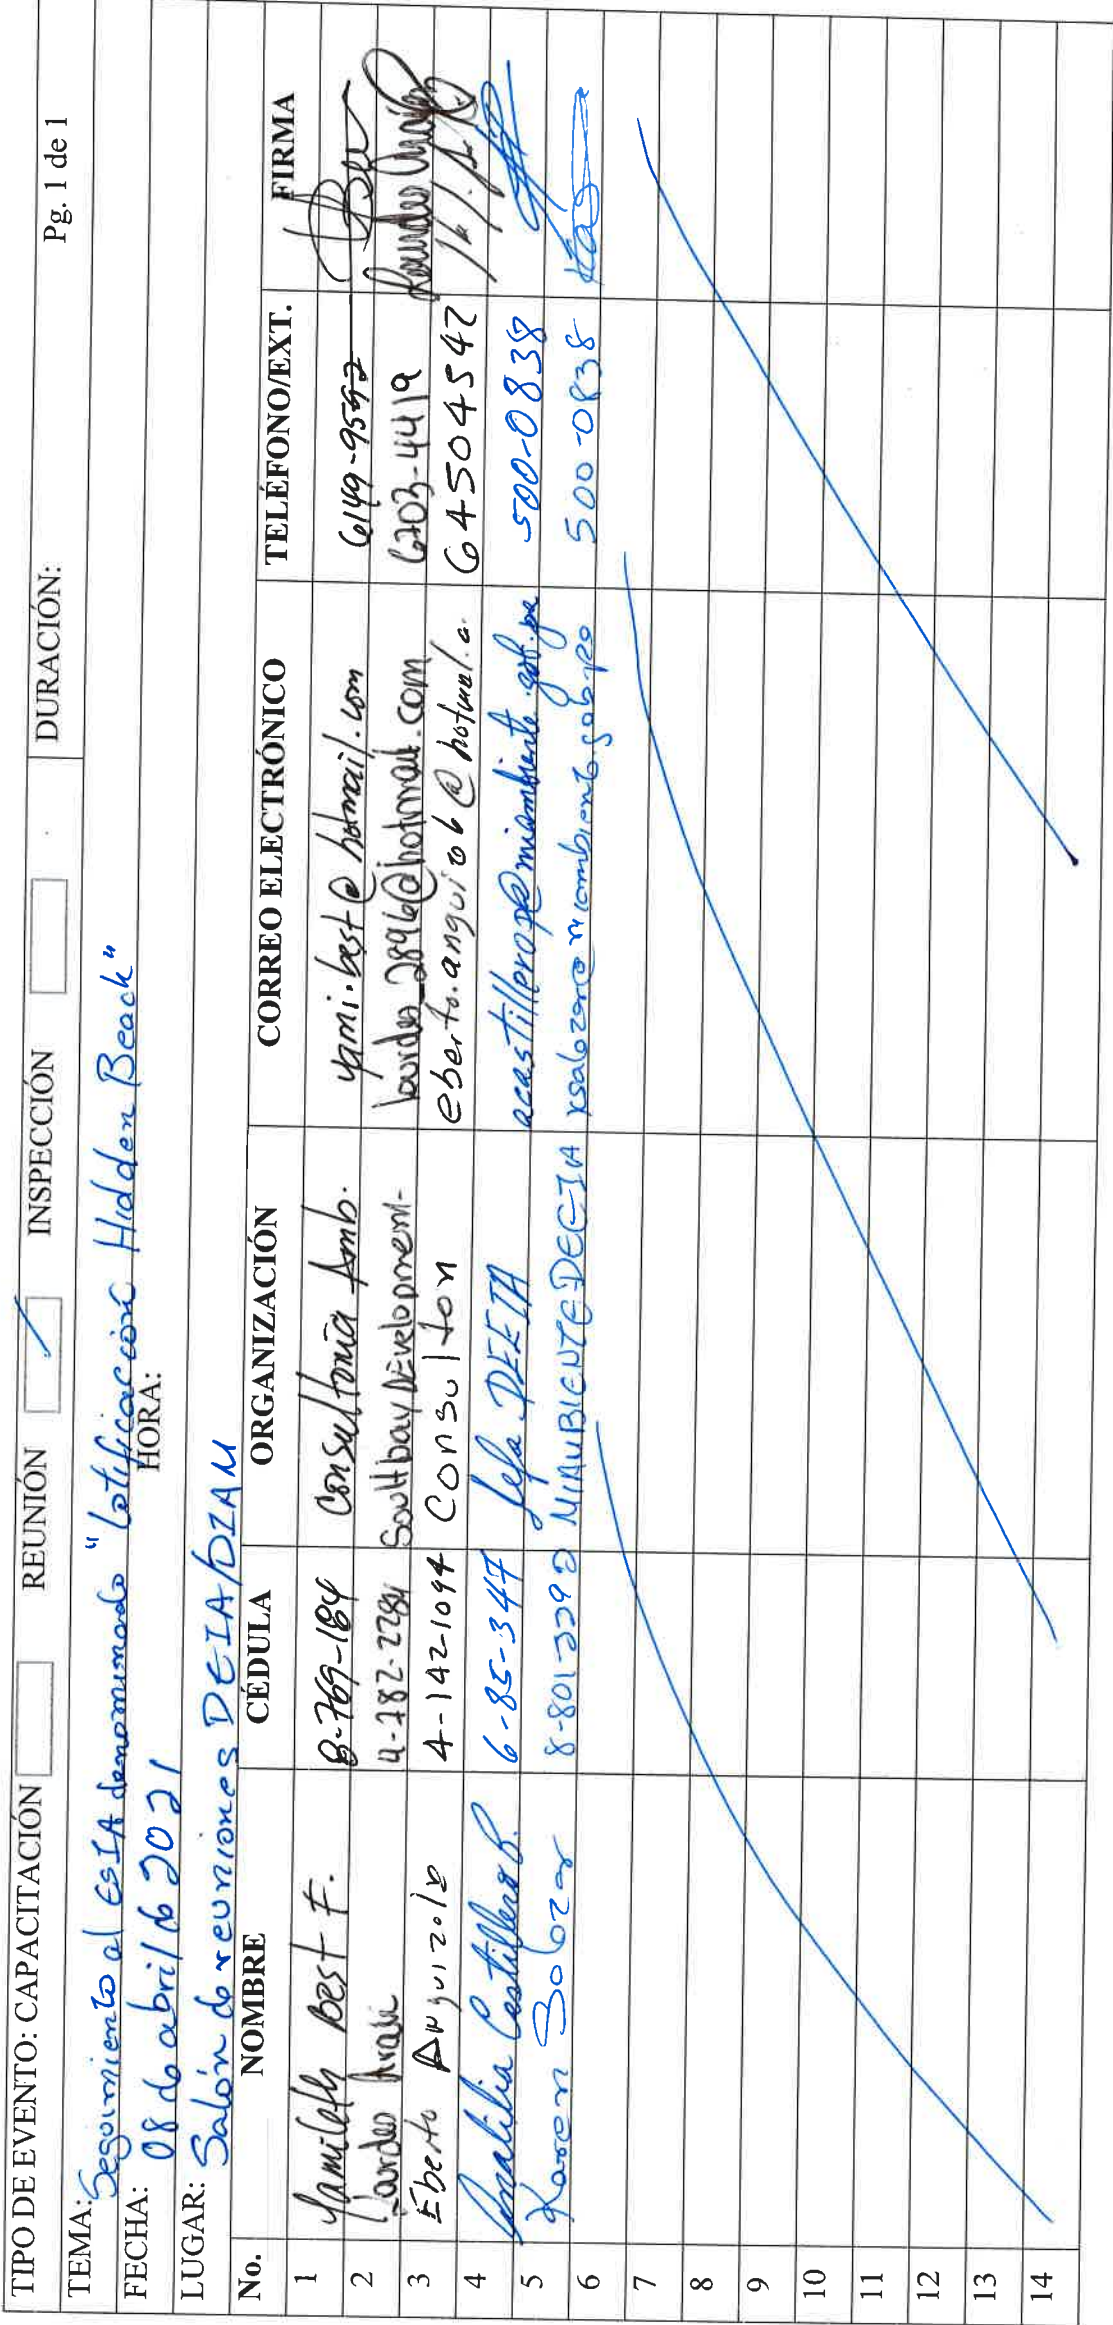 TIPO DE EVENTO: CAPACITACIÓN REUNIÓN INSPECCIÓN DURACIÓN: Pg. 1 de 1
TEMA: Seguimiento al EsIA denominado "Lotificación Hidden Beach"
FECHA: 08 de abril de 2021 HORA:
LUGAR: Salón de reuniones DEIA/DIAM
No. NOMBRE CÉDULA ORGANIZACIÓN CORREO ELECTRÓNICO TELÉFONO/EXT. FIRMA
1 Yamileth Best F. 8-769-184 Consultoria Amb. yami.best@hotmail.com 6149-9592
2 Lourdes 4-782-2284 Southbay Development lourdes_2896@hotmail.com 6203-4419
3 Eberto Anguizola 4-142-1094 Consultor eberto.anguizob@hotmail.c. 64504542
4 Analilia Castillero P. 6-85-347 Jefa DEEIA acastillerop@miambiente.gob.pa 500-0838
5 Karen Salazar 8-801-2292 MIAMBIENTE-DEEIA ksalazar@miambiente.gob.pa 500-0838
6
7
8
9
10
11
12
13
14